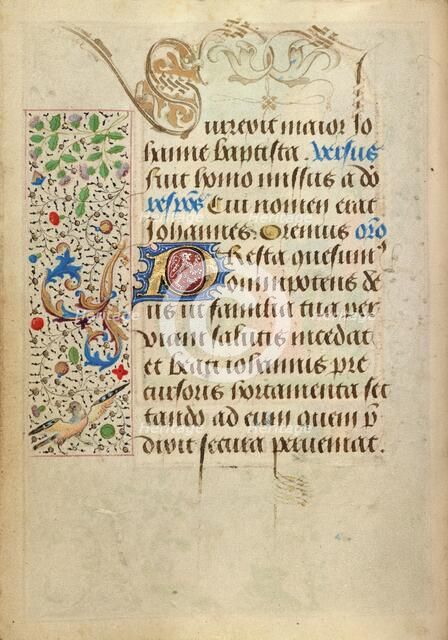 Surrexit maior Io
hanne baptista. Versus
fuit homo missus a do
respõs Cui nomen erat
Iohannes. Oremus orõ
Presta quesum
omnipotens de
us ut familia tua per
viam salutis incedat
et beati iohannis pre
cursoris hortamenta sec
tando ad eum quem p
dixit secura perveniat.